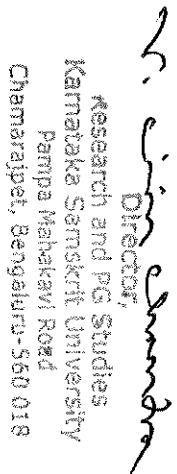 Director,
Research and PG Studies
Karnataka Samskrit University
Pampa Mahakavi Road
Chamarajpet, Bengaluru-560 018